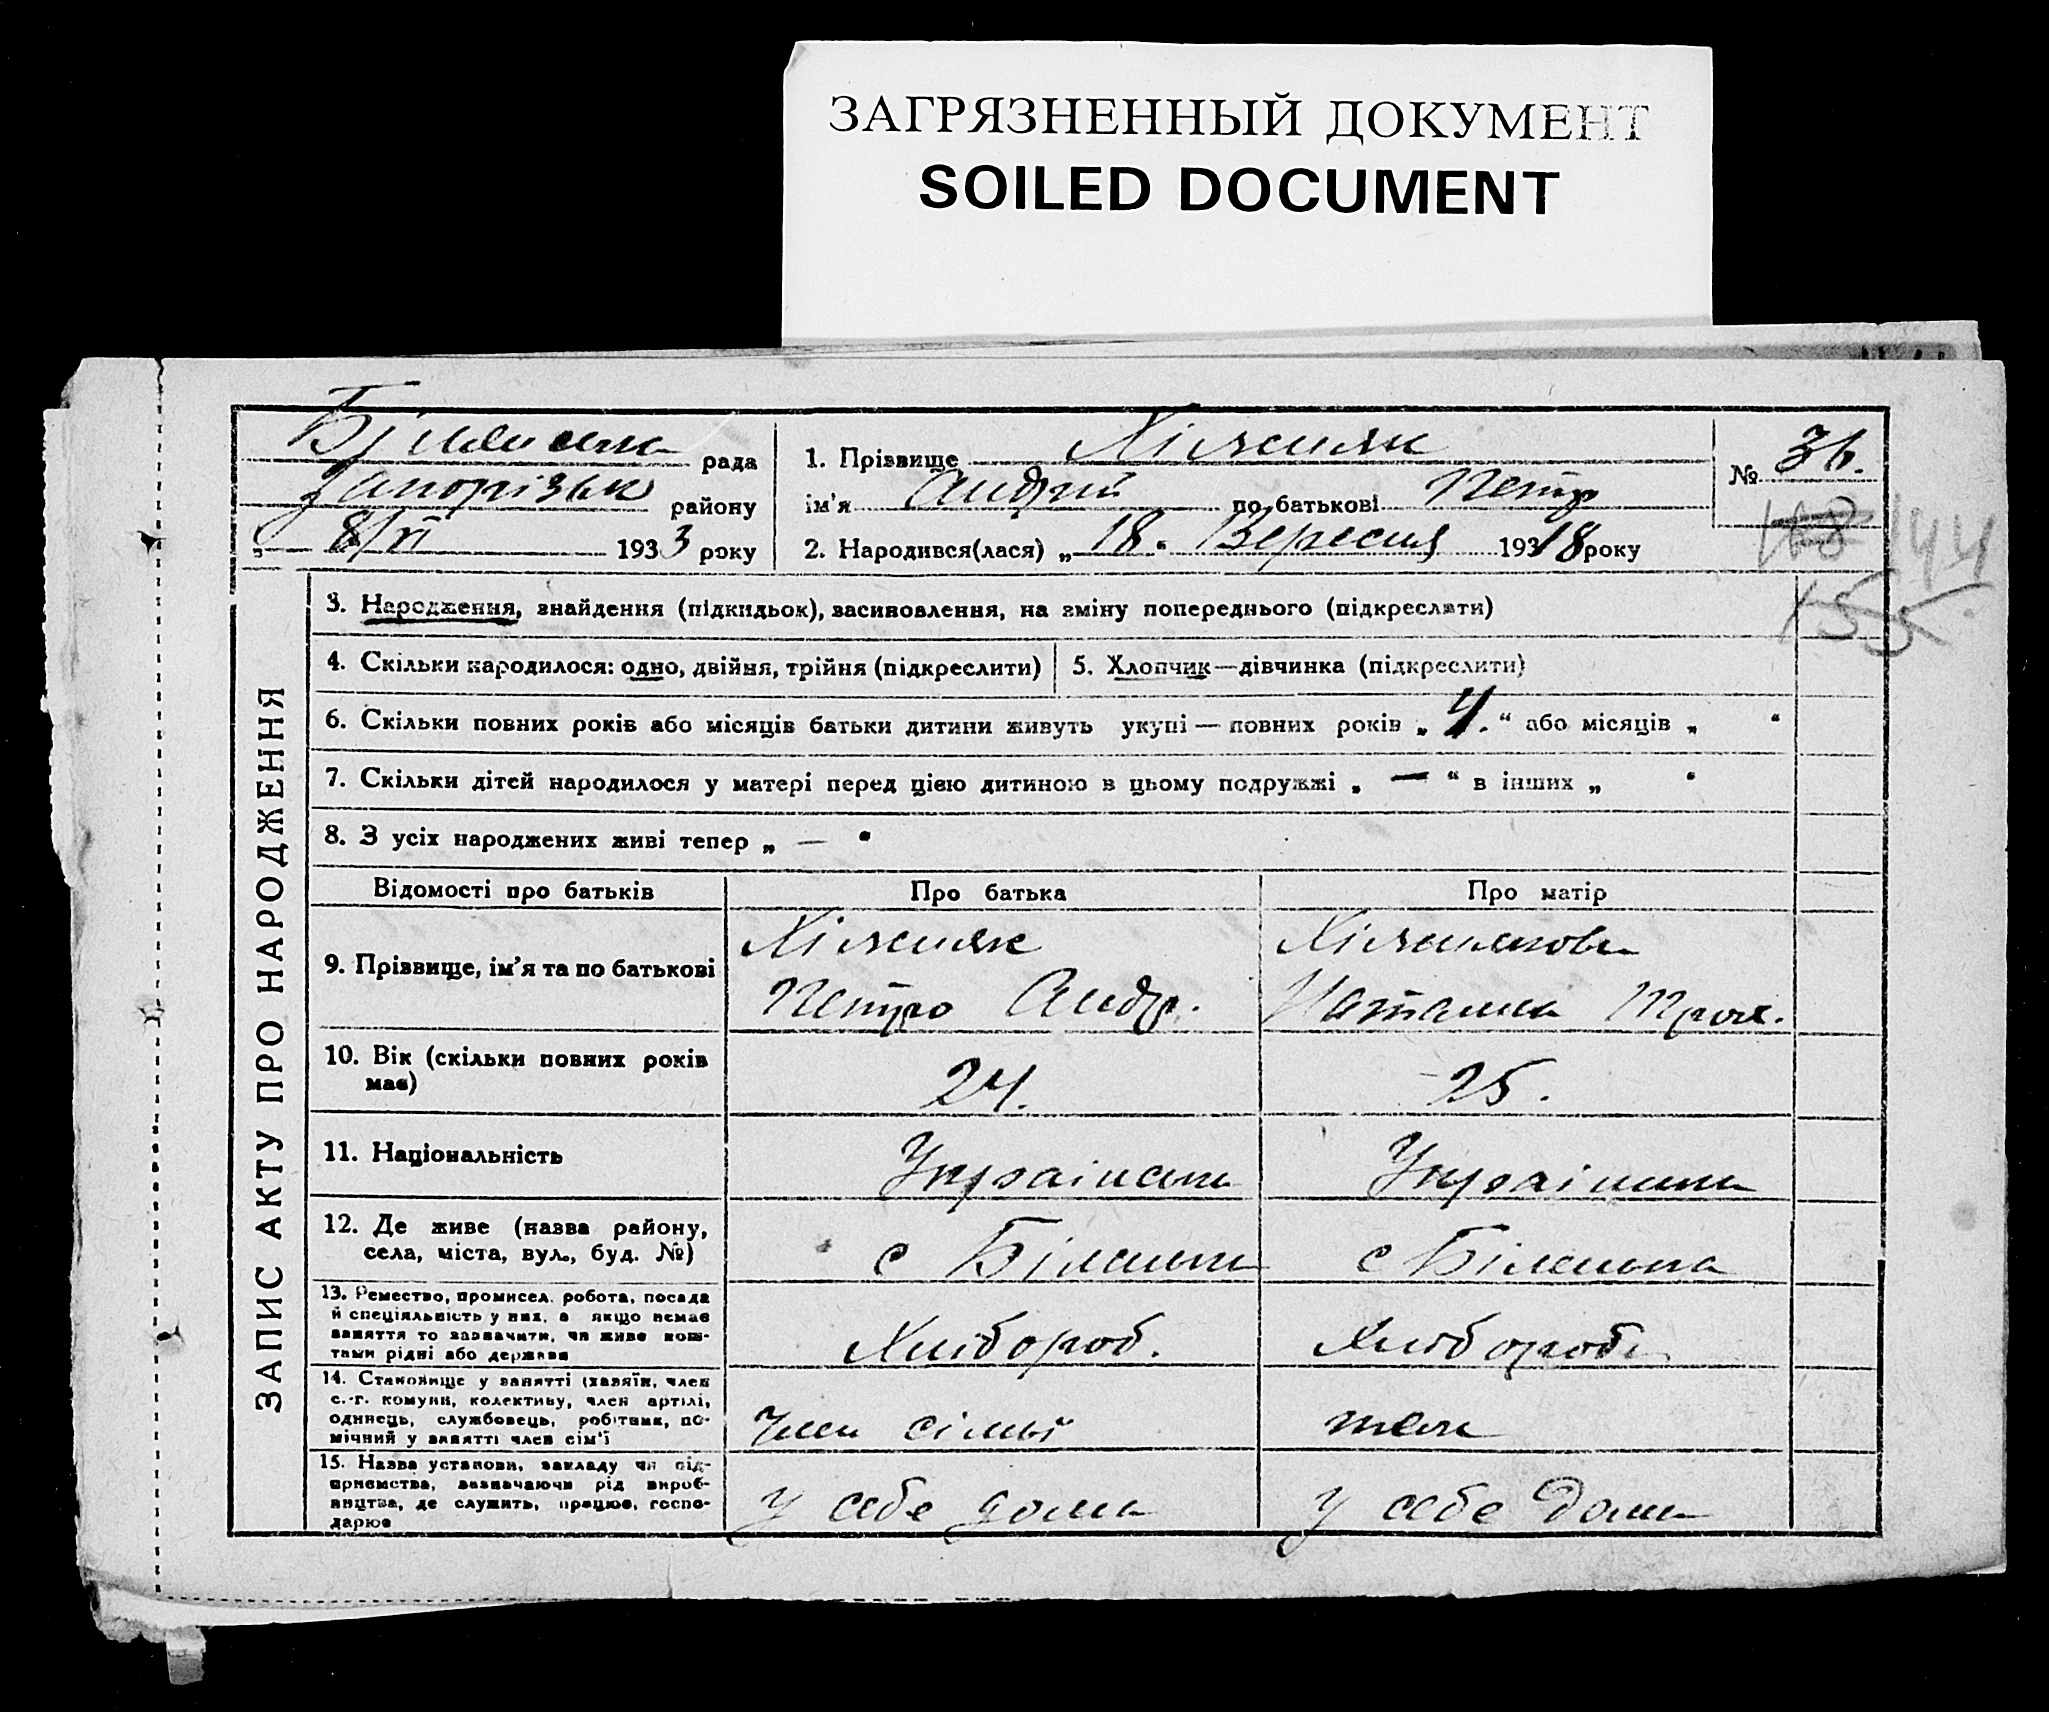 ЗАГРЯЗНЕННЫЙ ДОКУМЕНТ
SOILED DOCUMENT
рада
Запорізьк району
„ 8/VI 1933 року
1. Прізвище
ім'я Андрій по батькові Петр
2. Народився(лася) „18.“ Вересня 193 18 року
№ 36.
144
155
ЗАПИС АКТУ ПРО НАРОДЖЕННЯ
3. Народження, знайдення (підкидьок), засиновлення, на зміну попереднього (підкреслити)
4. Скільки народилося: одно, двійня, трійня (підкреслити)
5. Хлопчик—дівчинка (підкреслити)
6. Скільки повних років або місяців батьки дитини живуть укупі — повних років „4.“ або місяців „ “
7. Скільки дітей народилося у матері перед цією дитиною в цьому подружжі „ — “ в інших „ “
8. З усіх народжених живі тепер „ — “
Відомості про батьків
Про батька
Про матір
9. Прізвище, ім'я та по батькові
Петро Андр.
10. Вік (скільки повних років має)
24.
25.
11. Національність
12. Де живе (назва району, села, міста, вул., буд. №)
с
с
13. Ремество, промисел, робота, посада й спеціяльність у них, а якщо немає заняття то зазначити, чи живе коштами рідні або держави
Хлібороб.
Хлібороб
14. Становище у занятті (хазяїн, член с.-г. комуни, колективу, член артілі, одинець, службовець, робітник, помічний у занятті член сім'ї
член сімьї
теж
15. Назва установи, закладу чи підприємства, зазначаючи рід виробництва, де служить, працює, господарює
у себе дома
у себе дома